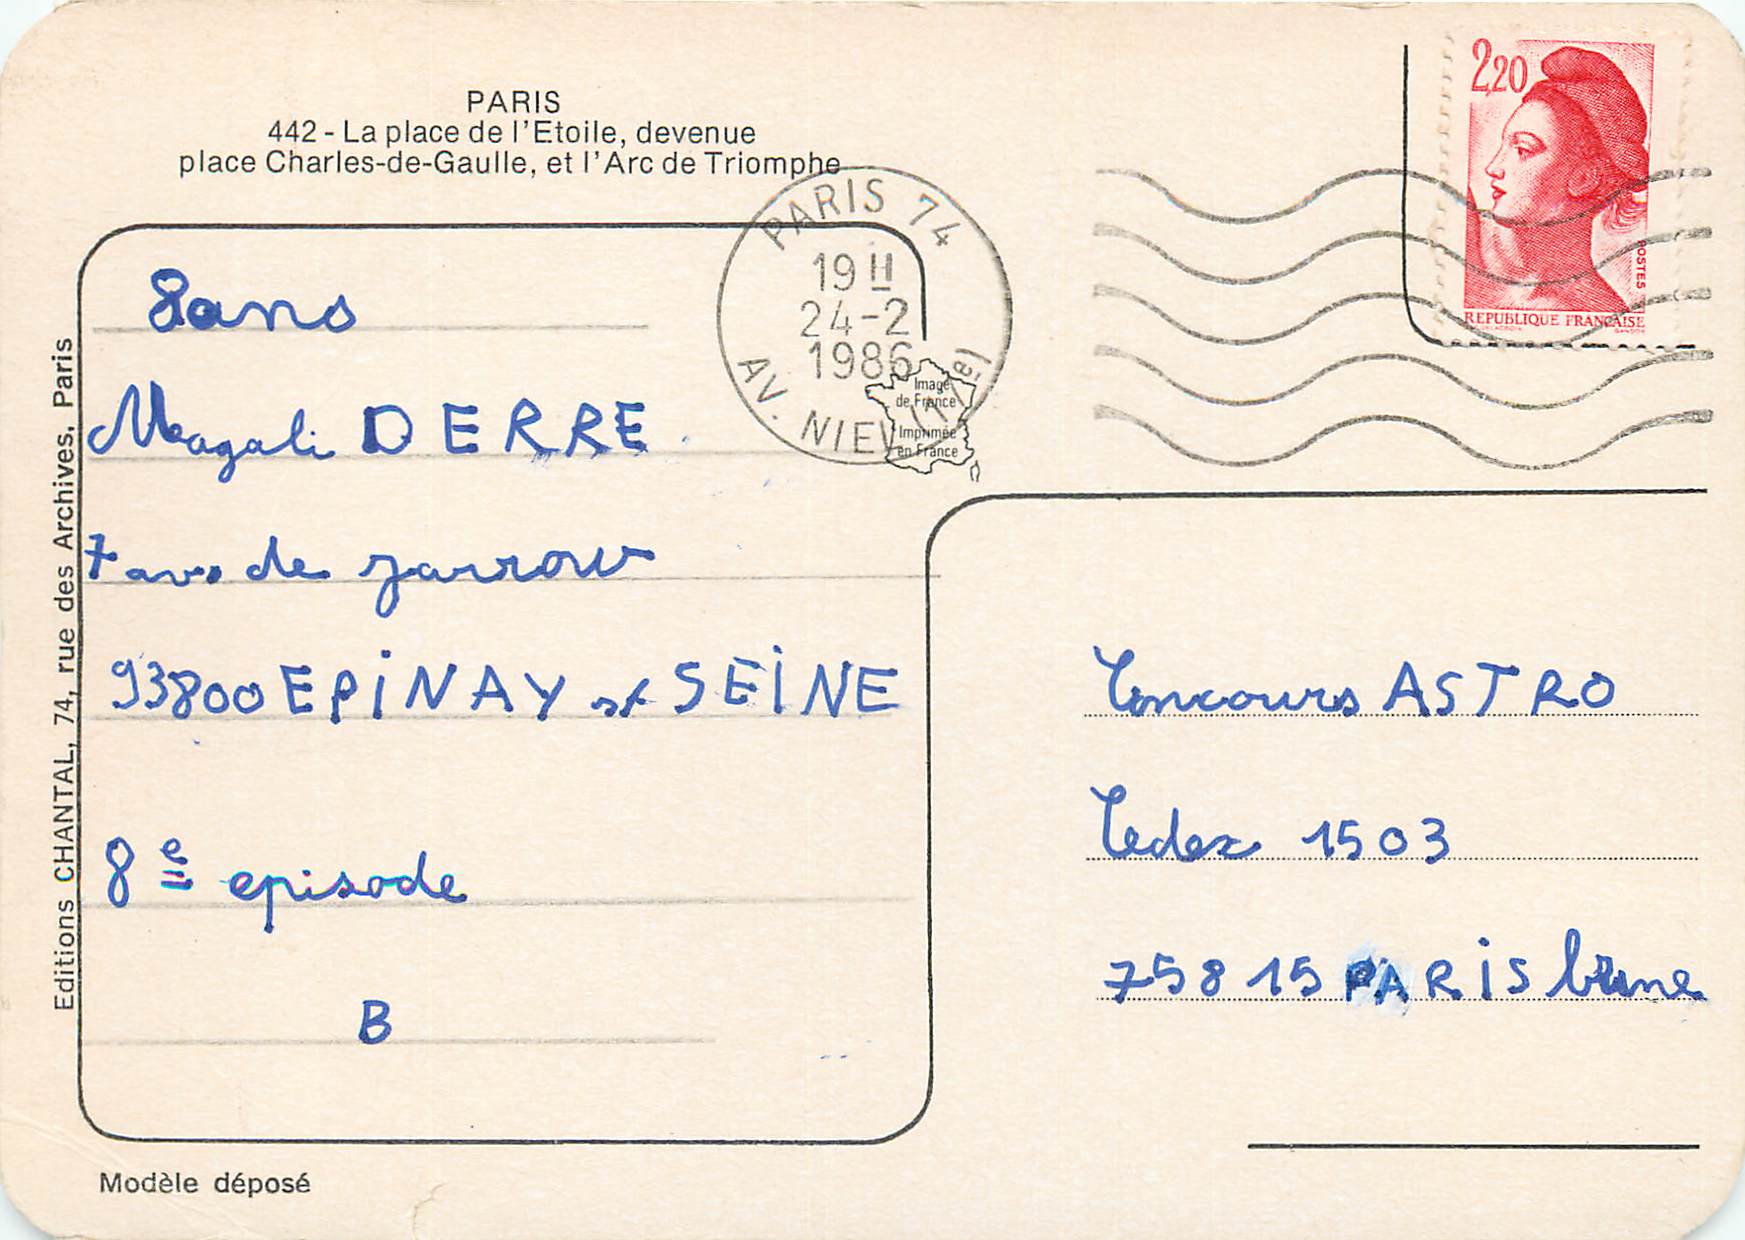 PARIS
442 - La place de l'Etoile, devenue
place Charles-de-Gaulle, et l'Arc de Triomphe
2,20
POSTES
REPUBLIQUE FRANÇAISE
PARIS 74
19 H
24-2
1986
AV. NIEL (17e)
Image
de France
Imprimée
en France
8 ans
Magali DERRE
7 de
93800 EPINAY st SEINE
8e episode
B
Concours ASTRO
Cedex 1503
75815 PARIS brune
Editions CHANTAL, 74, rue des Archives, Paris
Modèle déposé